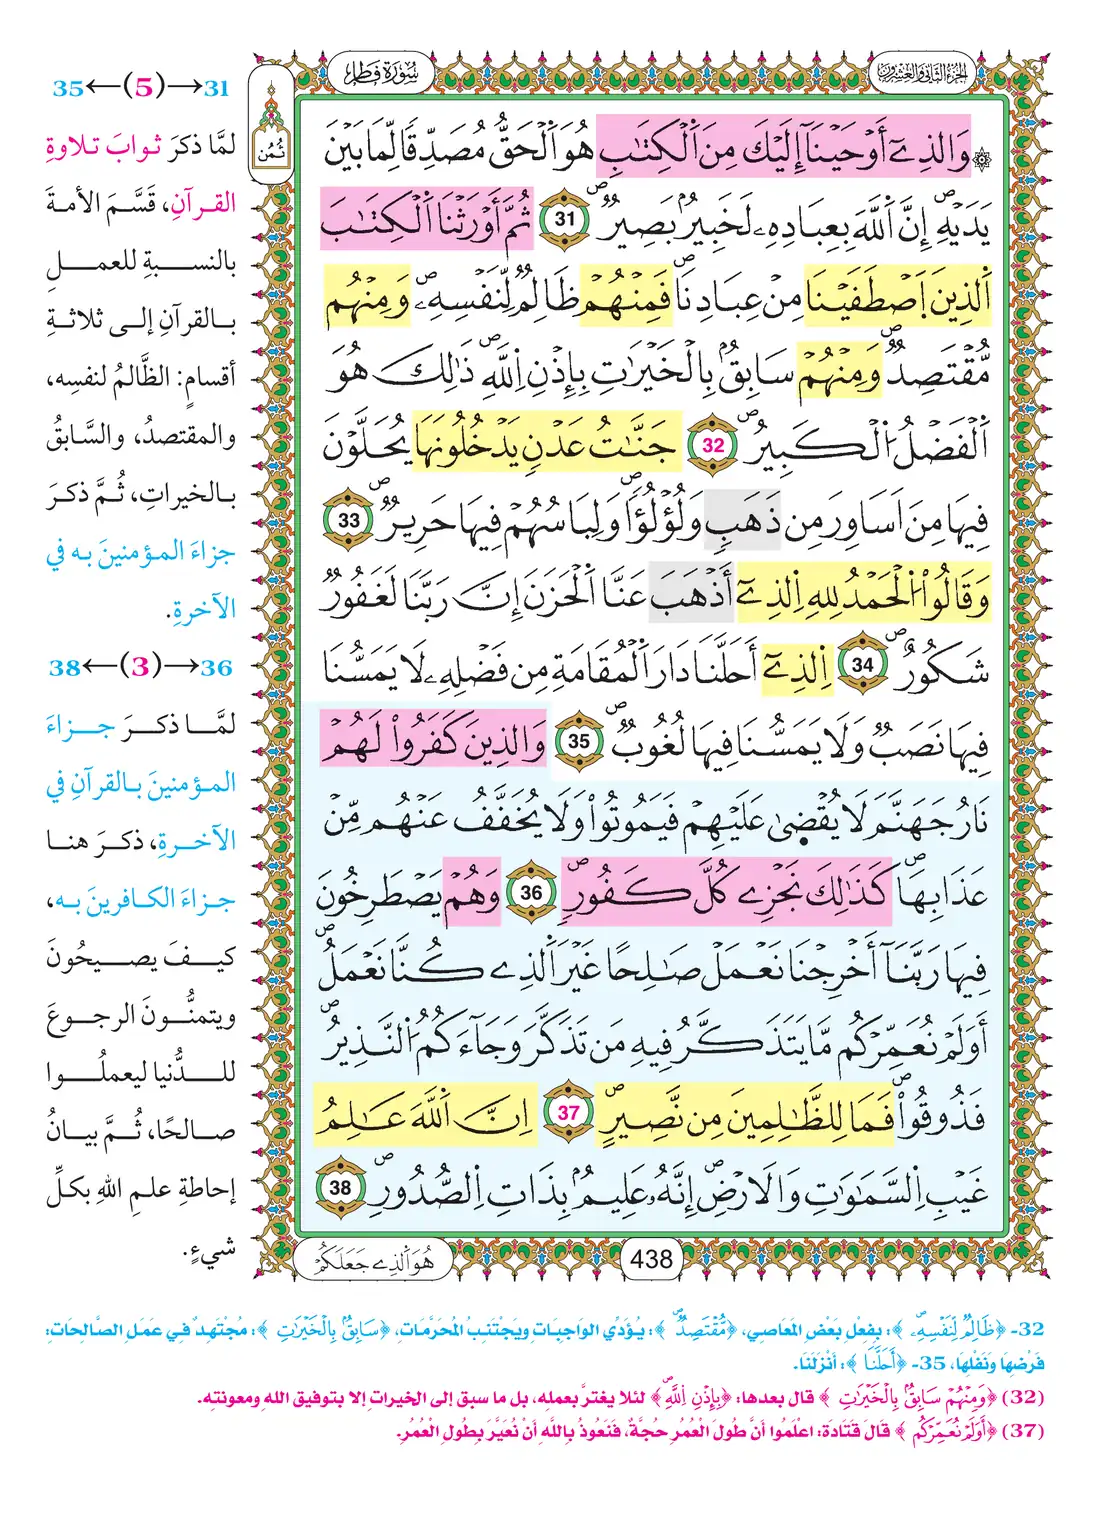 سُورَةُ فَاطِرٍ
الجُزْءُ الثَّانِي وَالعِشْرُونَ
ثُمُن
۞ وَالذِےٓ أَوْحَيْنَآ إِلَيْكَ مِنَ اَ۬لْكِتَٰبِ هُوَ اَ۬لْحَقُّ مُصَدِّقاٗ لِّمَا بَيْنَ
يَدَيْهِۖ إِنَّ اَ۬للَّهَ بِعِبَادِهِۦ لَخَبِيرُۢ بَصِيرٞۖ 31 ثُمَّ أَوْرَثْنَا اَ۬لْكِتَٰبَ
اَ۬لذِينَ اَ۪صْطَفَيْنَا مِنْ عِبَادِنَاۖ فَمِنْهُمْ ظَالِمٞ لِّنَفْسِهِۦۖ وَمِنْهُم
مُّقْتَصِدٞۖ وَمِنْهُمْ سَابِقُۢ بِالْخَيْرَٰتِ بِإِذْنِ اِ۬للَّهِۖ ذَٰلِكَ هُوَ
اَ۬لْفَضْلُ اُ۬لْكَبِيرُۖ 32 جَنَّٰتُ عَدْنٖ يَدْخُلُونَهَا يُحَلَّوْنَ
فِيهَا مِنَ اَسَاوِرَ مِن ذَهَبٖ وَلُؤْلُؤاٗۖ وَلِبَاسُهُمْ فِيهَا حَرِيرٞۖ 33
وَقَالُواْ اُ۬لْحَمْدُ لِلهِ اِ۬لذِےٓ أَذْهَبَ عَنَّا اَ۬لْحَزَنَ إِنَّ رَبَّنَا لَغَفُورٞ
شَكُورٌۖ 34 اِ۬لذِےٓ أَحَلَّنَا دَارَ اَ۬لْمُقَامَةِ مِن فَضْلِهِۦ لَا يَمَسُّنَا
فِيهَا نَصَبٞ وَلَا يَمَسُّنَا فِيهَا لُغُوبٞۖ 35 وَالذِينَ كَفَرُواْ لَهُمْ
نَارُ جَهَنَّمَ لَا يُقْض۪ىٰ عَلَيْهِمْ فَيَمُوتُواْ وَلَا يُخَفَّفُ عَنْهُم مِّنْ
عَذَابِهَاۖ كَذَٰلِكَ نَجْزِے كُلَّ كَفُورٖۖ 36 وَهُمْ يَصْطَرِخُونَ
فِيهَا رَبَّنَآ أَخْرِجْنَا نَعْمَلْ صَٰلِحاً غَيْرَ اَ۬لذِے كُنَّا نَعْمَلُۖ
أَوَلَمْ نُعَمِّرْكُم مَّا يَتَذَكَّرُ فِيهِ مَن تَذَكَّرَ وَجَآءَكُمُ اُ۬لنَّذِيرُۖ
فَذُوقُواْۖ فَمَا لِلظَّٰلِمِينَ مِن نَّصِيرٍۖ 37 اِنَّ اَ۬للَّهَ عَٰلِمُ
غَيْبِ اِ۬لسَّمَٰوَٰتِ وَالَارْضِۖ إِنَّهُۥ عَلِيمُۢ بِذَاتِ اِ۬لصُّدُورِۖ 38
438
هُوَ اَ۬لذِے جَعَلَكُمْ
31→(5)←35
لمَّا ذكرَ ثوابَ تلاوةِ
القرآنِ، قَسَّمَ الأمةَ
بالنسبةِ للعملِ
بالقرآنِ إلى ثلاثةِ
أقسامٍ: الظَّالمُ لنفسِه،
والمقتصدُ، والسَّابقُ
بالخيراتِ، ثُمَّ ذكرَ
جزاءَ المؤمنينَ به في
الآخرةِ.
36→(3)←38
لمَّا ذكرَ جزاءَ
المؤمنينَ بالقرآنِ في
الآخرةِ، ذكرَ هنا
جزاءَ الكافرينَ به،
كيفَ يصيحُونَ
ويتمنُّونَ الرجوعَ
للدُّنيا ليعملُوا
صالحًا، ثُمَّ بيانُ
إحاطةِ علمِ اللهِ بكلِّ
شيءٍ.
32- ﴿ظَالِمٞ لِّنَفْسِهِۦۖ﴾: بِفِعْلِ بَعْضِ المَعَاصِي، ﴿مُّقْتَصِدٞۖ﴾: يُؤَدِّي الوَاجِبَاتِ وَيَجْتَنِبُ المُحَرَّمَاتِ، ﴿سَابِقُۢ بِالْخَيْرَٰتِ﴾: مُجْتَهِدٌ فِي عَمَلِ الصَّالِحَاتِ:
فَرْضِهَا وَنَفْلِهَا، 35- ﴿أَحَلَّنَا﴾: أَنْزَلَنَا.
(32) ﴿وَمِنْهُمْ سَابِقُۢ بِالْخَيْرَٰتِ﴾ قال بعدها: ﴿بِإِذْنِ اِ۬للَّهِۖ﴾ لئلا يغترَّ بعمله، بل ما سبق إلى الخيرات إلا بتوفيق الله ومعونته.
(37) ﴿أَوَلَمْ نُعَمِّرْكُم﴾ قَالَ قَتَادَة: اعْلَمُوا أنَّ طُولَ الْعُمُرِ حجَّةٌ، فَنَعُوذُ بِاللَّهِ أنْ نُعَيَّرَ بِطُولِ الْعُمُرِ.